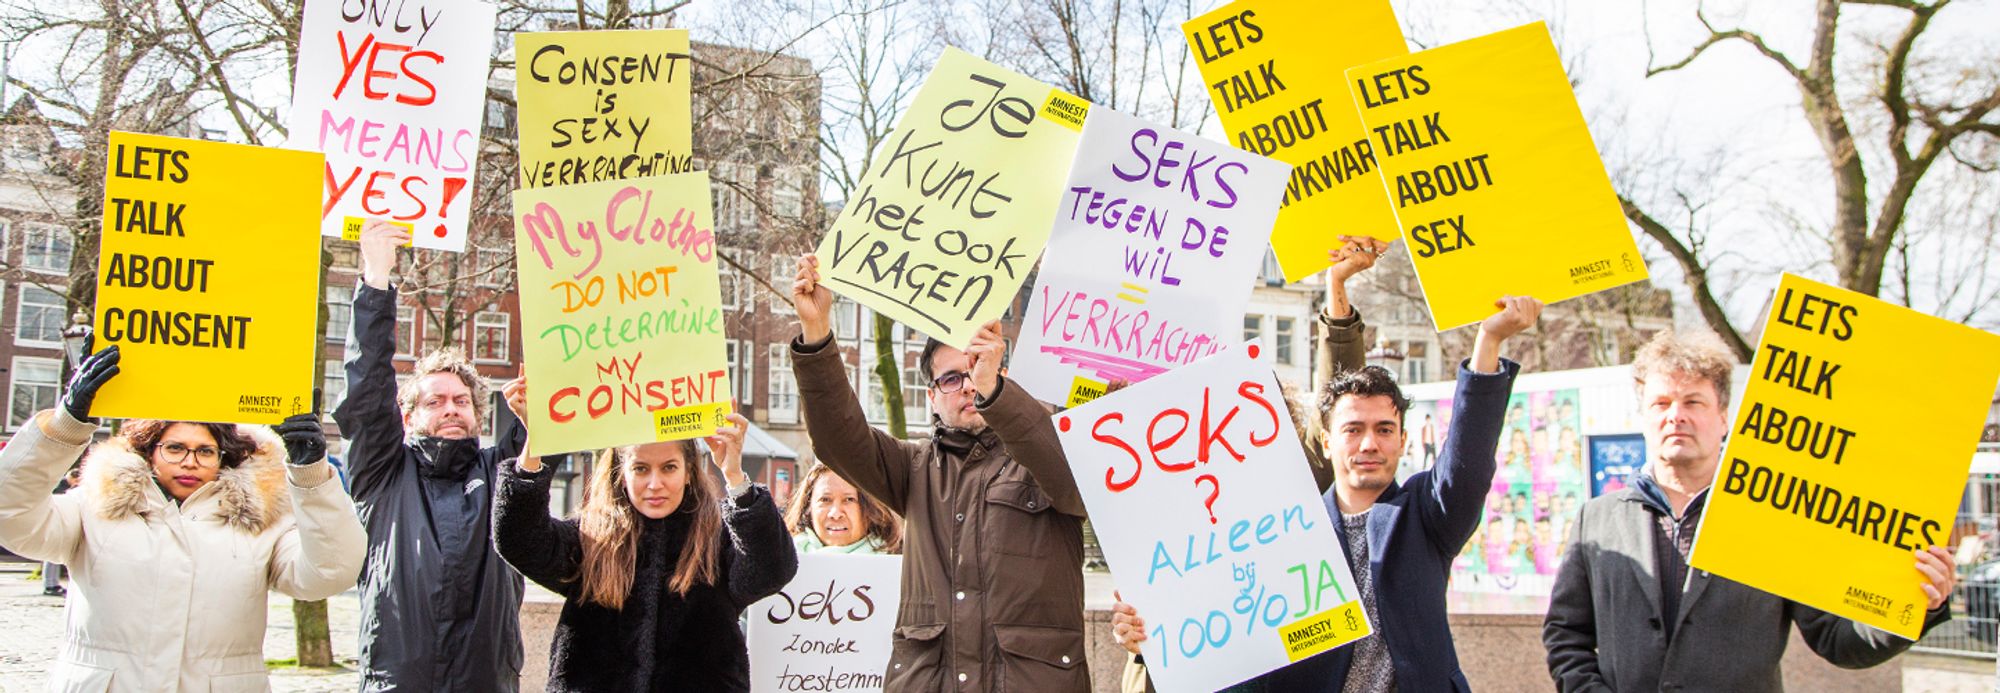 LETS
TALK
ABOUT
CONSENT
AMNESTY
INTERNATIONAL
ONLY
YES
MEANS
YES!
CONSENT
is
SEXY
VERKRACHTING
My Clothes
DO NOT
Determine
MY
CONSENT
AMNESTY
INTERNATIONAL
Je
Kunt
het ook
VRAGEN
AMNESTY
INTERNATIONAL
SEKS
TEGEN DE
WIL
=
VERKRACHTIN
Seks
?
ALLeen
bij
100% JA
AMNESTY
INTERNATIONAL
Seks
zonder
toestemm
LETS
TALK
ABOUT
LETS
TALK
ABOUT
SEX
AMNESTY
INTERNATIONAL
LETS
TALK
ABOUT
BOUNDARIES
AMNESTY
INTERNATIONAL